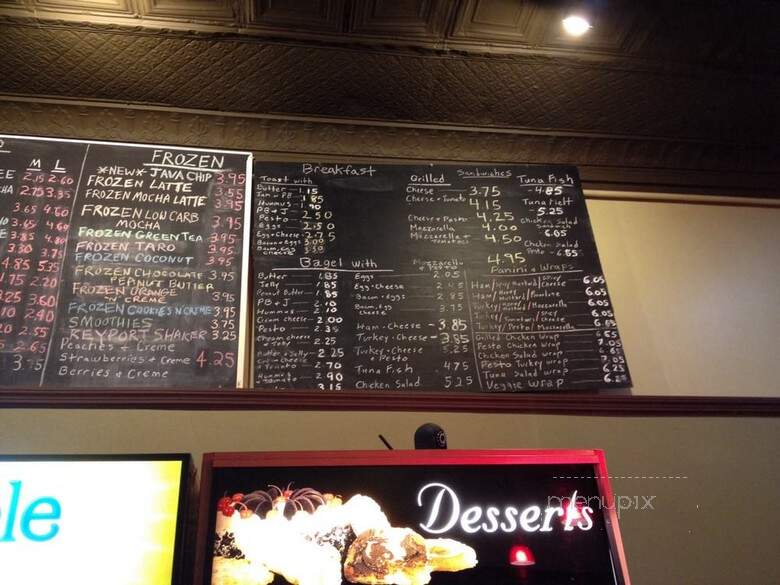 M L
2.15 2.60
2.75 3.35
3.65 4.60
3.65 4.60
3.85 4.80
3.30 3.75
4.85 5.35
1.75 2.20
3.25 3.60
2.10 2.40
2.20 2.55
2.65
FROZEN
*NEW* JAVA CHIP 3.95
FROZEN LATTE 3.55
FROZEN MOCHA LATTE 3.95
FROZEN LOW CARB MOCHA 3.95
FROZEN GREEN TEA 3.95
FROZEN TARO 3.95
FROZEN COCONUT 3.95
FROZEN CHOCOLATE 3.95
PEANUT BUTTER
FROZEN ORANGE N CREME 3.95
FROZEN COOKIES N CREME 3.95
SMOOTHIES 3.75
KEYPORT SHAKER 3.25
Peaches + Creme
Strawberries + Creme 4.25
Berries + Creme
Breakfast
Toast with
Butter - 1.15
Jam - PB 1.85
Hummus - 1.90
PB + J
Pesto - 2.50
Eggs - 2.15
Egg + Cheese - 2.75
Bacon + Eggs 3.00
Bacon, Egg, Cheese 3.50
Bagel with
Butter 1.85
Jelly 1.85
Peanut Butter 1.85
PB + J 2.10
Hummus 2.10
Cream Cheese 2.00
Pesto 2.35
Cream cheese + Jelly 2.25
Butter + Jelly 2.25
+ Tomato 2.70
Hummus + Tomato 2.90
3.15
Eggs 2.05
Egg - Cheese 2.45
Bacon - Eggs 2.85
Bacon, Egg, Cheese 3.75
Ham - Cheese - 3.85
Turkey - Cheese - 3.85
Turkey - Cheese + Pesto 5.25
Tuna Fish 4.75
Chicken Salad 5.25
Grilled Sandwiches
Cheese - 3.75
Cheese + Tomato 4.15
Cheese + Pesto 4.25
Mozzarella 4.00
Mozzarella + Tomatoes 4.50
Mozzarella + Pesto 4.95
Tuna Fish - 4.85
Tuna Melt 5.25
Chicken Salad Sandwich 6.05
Chicken Salad Pesto - 6.55
Panini + Wraps
6.05
6.05
6.05
6.05
Turkey / Pesto / Mozzarella 6.55
Grilled Chicken Wrap 6.55
Pesto Chicken Wrap 7.05
Chicken Salad Wrap
Pesto Turkey Wrap 7.05
Tuna Salad Wrap 6.25
Veggie Wrap 6.25
le
Desserts
menupix